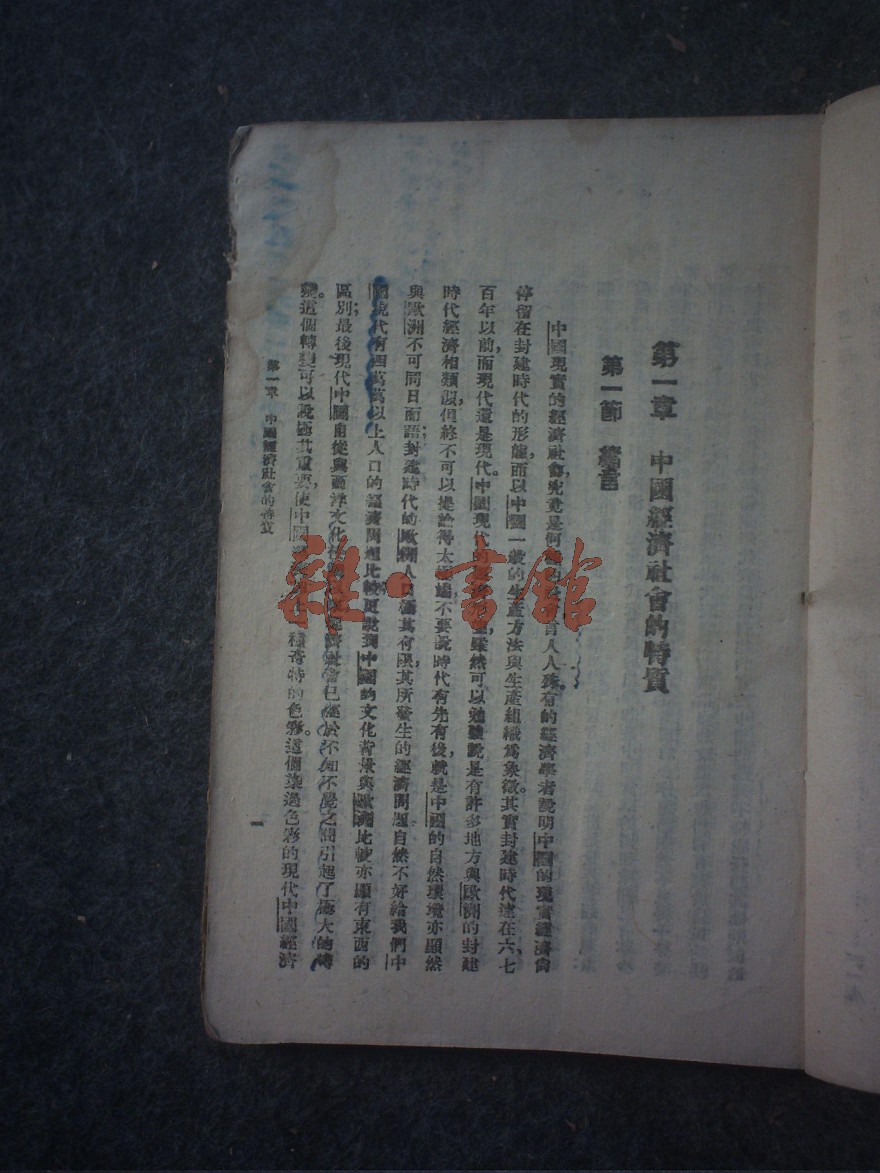 第一章　中國經濟社會的特質
第一節　緒言
中國現實的經濟社會,究竟是何言人人殊,有的經濟學者說明中國的現實經濟尚
停留在封建時代的形態,而以中國一般的生產方法與生產組織爲象徵。其實封建時代遠在六、七
百年以前,而現代還是現代。中國現代的雖然可以勉強說是有許多地方與歐洲的封建
時代經濟相類似,但終不可以提論得太不要說時代有先有後,就是中國的自然環境亦顯然
與歐洲不可同日而語;封建時代的歐洲人口極其有限,其所發生的經濟問題自然不好給我們中
國現代有四萬萬以上人口的經濟問題比較;更說到中國的文化背景與歐洲比較亦顯有東西的
區別;最後現代中國自從與西洋文化經濟社會已經於不知不覺之間引起了極大的轉
變。這個轉變可以說極其重要,使中國種奇特的色彩。這個染過色彩的現代中國經濟
第一章　中國經濟社會的特質
一
雜·書館